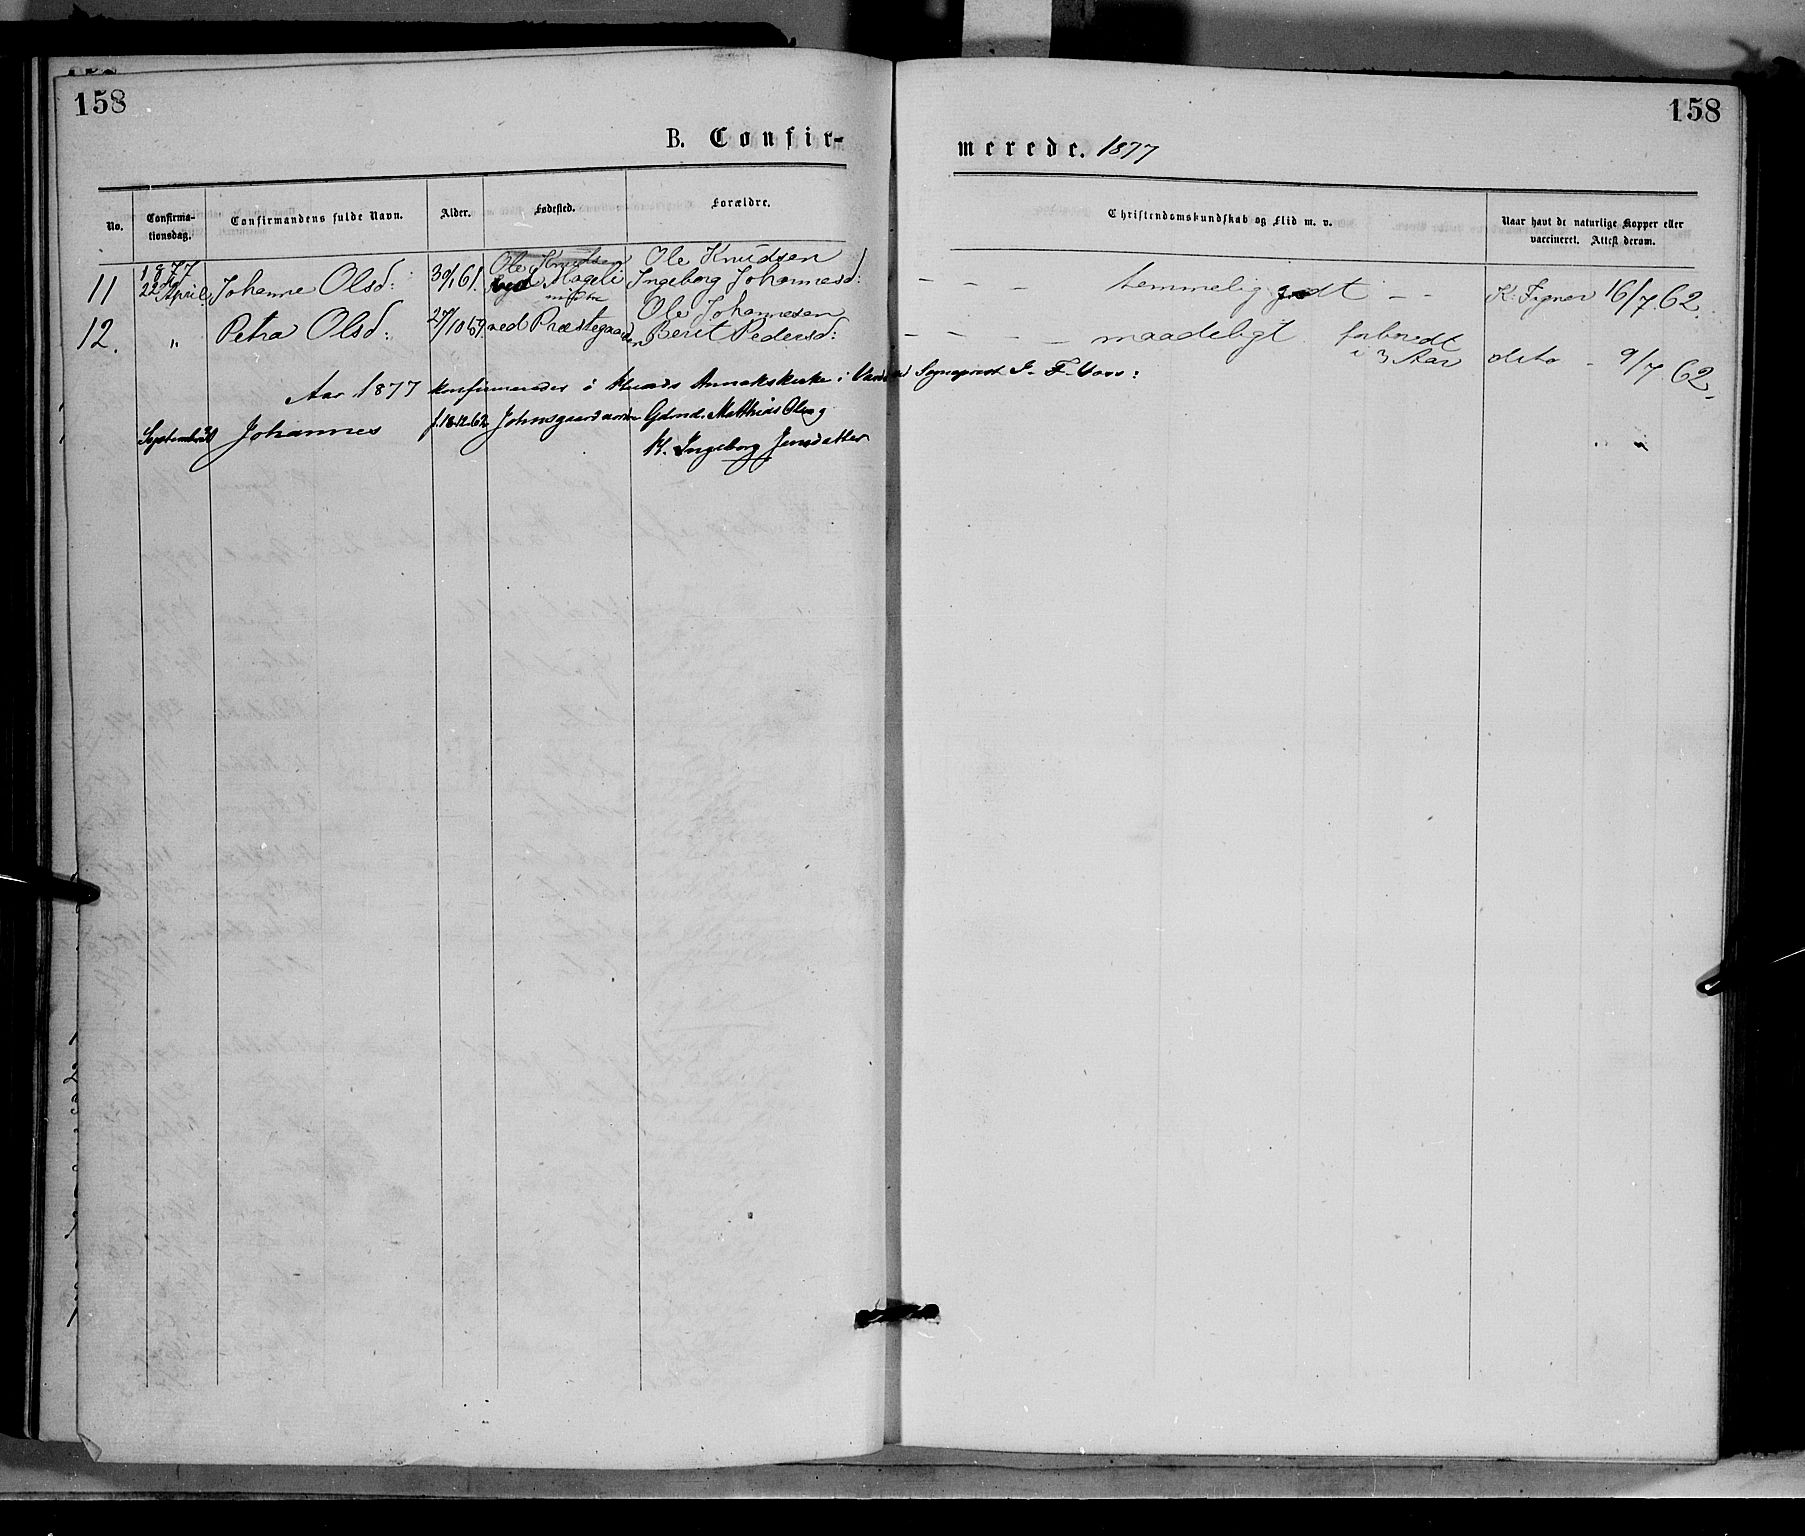 158
158
B. Confir-
merede. 1877
No.
Confirma-
tionsdag.
Confirmandens fulde Navn.
Alder.
Fødested.
Forældre.
Christendomskundskab og Flid m. v.
Naar havt de naturlige Kopper eller
vaccineret. Attest derom.
11
1877
22de April
Johanne Olsd:
30/1 61.
Ole Knudsen
Hageli
Ole Knudsen
Ingeborg Johannesd:
- - - temmelig godt - -
K: Fygner 16/7 62.
12.
"
Petra Olsd:
27/10 59.
ved Præstegaarden
Ole Johannesen
Berit Pedersd:
- - - maadeligt. forberedt
i 3 Aar
dito - 9/7 62.
Aar 1877 konfirmeredes i Annekskirke i Sogneprest
September
Johannes
f. 18-12-62
Johnsgaard
Gdmd. Matthias Olsen og
K. Ingeborg Jensdatter
" "